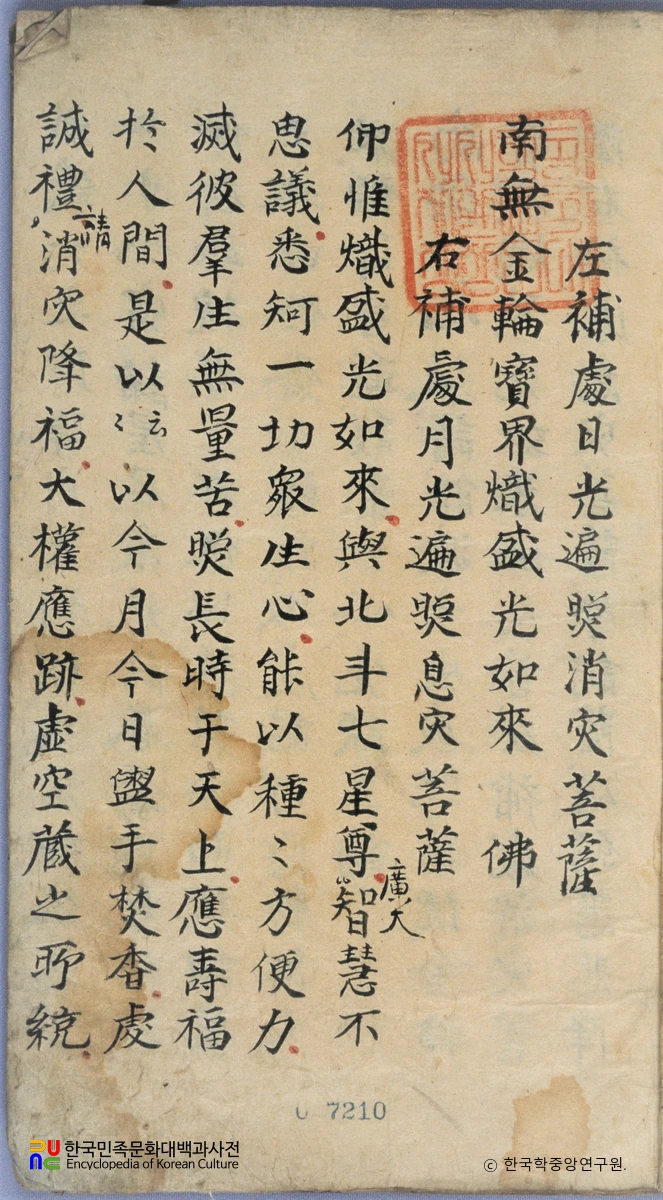 左補處日光遍照消灾菩薩
南無金輪寶界熾盛光如來 佛
右補處月光遍照息灾菩薩
仰惟熾盛光如來與北斗七星尊智慧不
廣大
思議悉知一切衆生心能以種〻方便力
滅彼羣生無量苦照長時于天上應壽福
於人間是以〻云以今月今日盥手焚香處
誠禮消灾降福大權應跡虛空藏之所統
請
U 7210
한국민족문화대백과사전
Encyclopedia of Korean Culture
ⓒ 한국학중앙연구원.